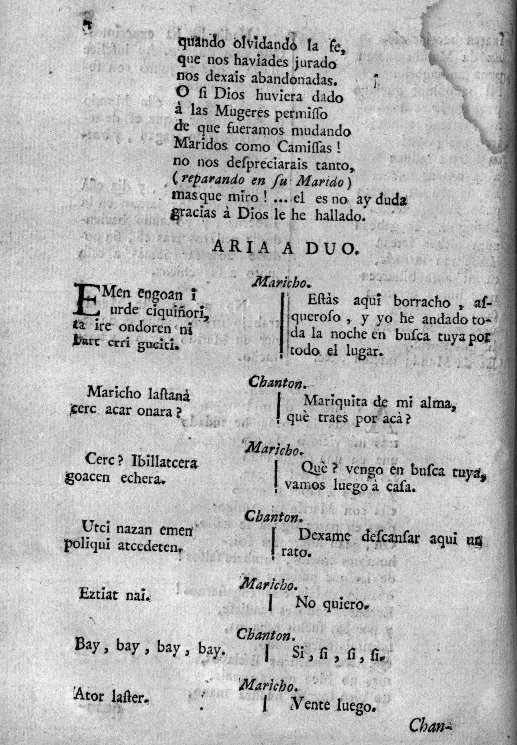 quando olvidando la fe,
que nos haviades jurado
nos dexais abandonadas.
O ſi Dios huviera dado
à las Mugeres permiſſo
de que fueramos mudando
Maridos como Camiſſas!
no nos deſpreciarais tanto,
(reparando en ſu Marido)
mas que miro! ... el es no ay duda
gracias à Dios le he hallado.
ARIA A DUO.
Maricho.
EMen engoan i
urde ciquiñori,
ta ire ondoren ni
bart erri guciti.
Eſtàs aqui borracho, aſ-
queroſo, y yo he andado to-
da la noche en buſca tuya por
todo el lugar.
Chanton.
Maricho laſtanà
cerc acar onara?
Mariquita de mi alma,
què traes por acà?
Maricho.
Cerc? Ibillatcera
goacen echera.
Què? vengo en buſca tuya,
vamos luego à caſa.
Chanton.
Utci nazan emen
poliqui atcedeten.
Dexame deſcanſar aqui un
rato.
Maricho.
Eztiat nai.
No quiero.
Chanton.
Bay, bay, bay, bay.
Si, ſi, ſi, ſi.
Maricho.
Ator laſter.
Vente luego.
Chan-